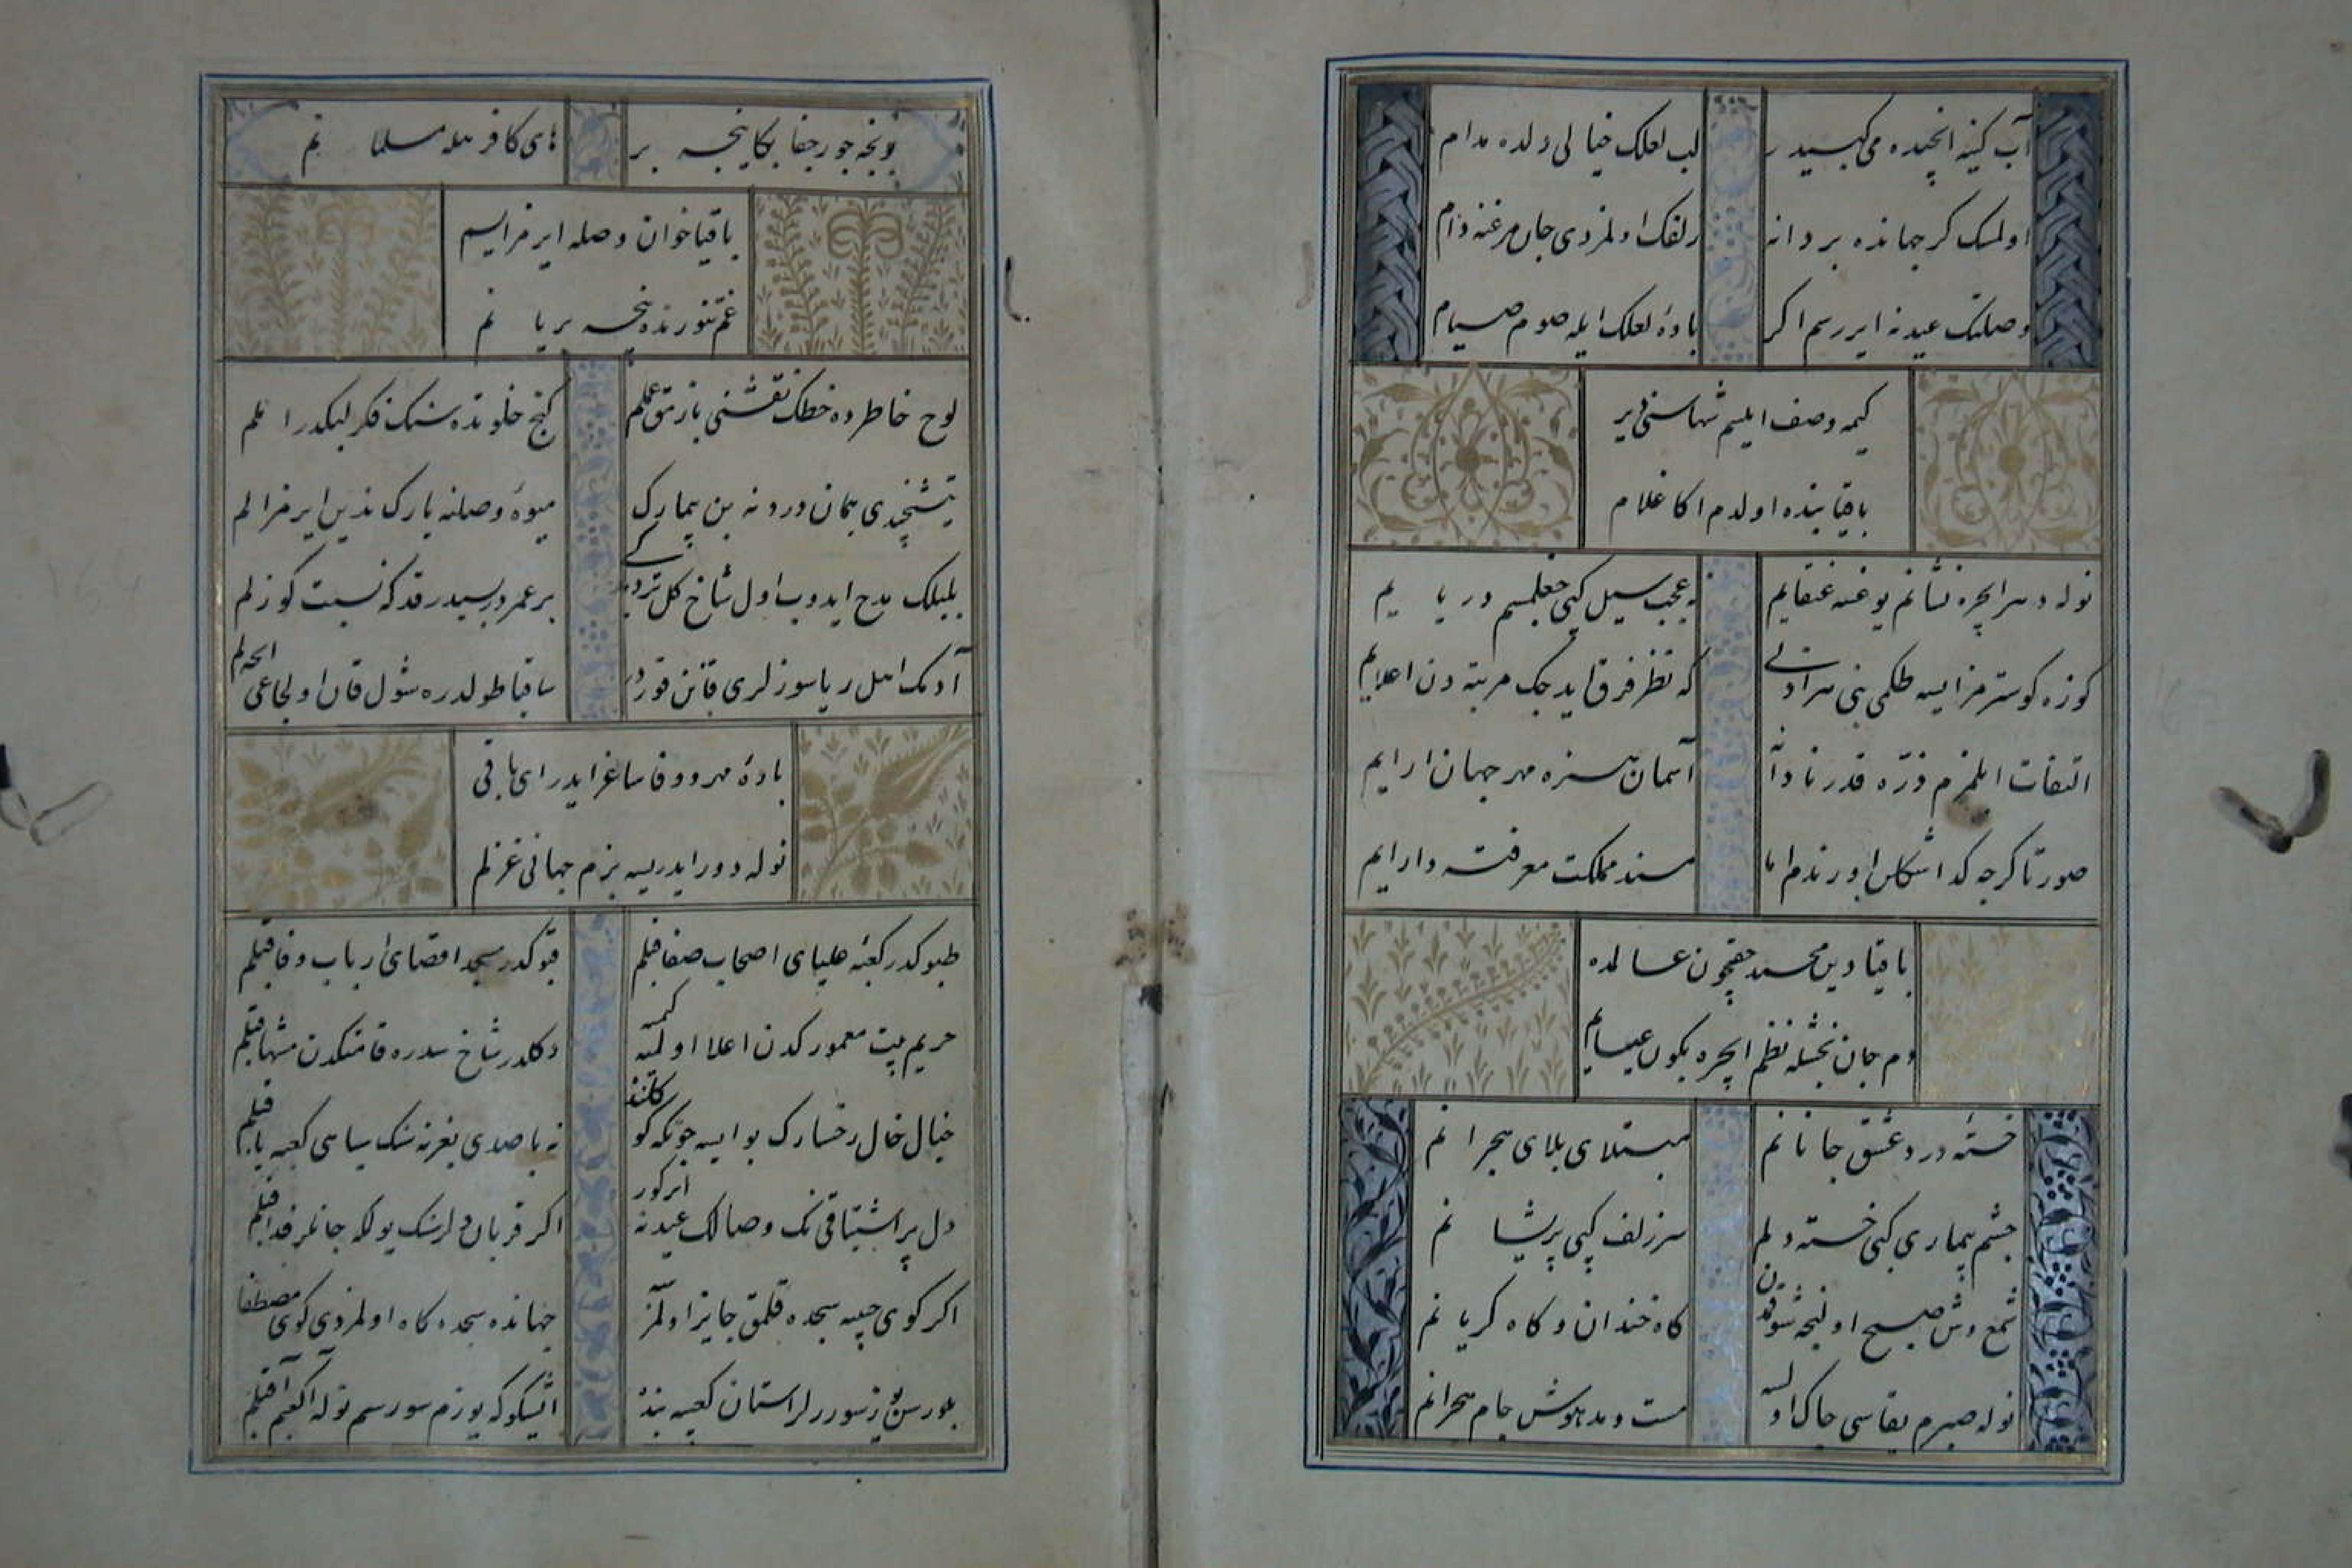 آب کینه ایچنده می کبیدر
لب لعلک خیالی دلده مدام
اولمسک کر جهانده بر دانه
زلفک اولمزدی جان مرغنه دام
وصلتک عیدنه ایررسم اکر
باده لعلک ایله صوم صیام
کیمه وصف ایلیم شها سنی بیر
باقیا بنده اولدم اکا غلام
نوله دهر ایچره نشانم یوغسه عنقایم
نه عجب سیل کبی چغلمسم دریایم
کوزه کوسترمز ایسه طکمی بنی هر ادنی
که نظر فرق ایدجک مرتبه دن اعلایم
التفات ایلمزم ذره قدر نادانه
آسمان هنره مهر جهان ارایم
صورتا کرچه کدا شکلن اورندم اما
مسند مملکت معرفته دارایم
باقیا دین محمد حقیچون عالمده
دم جان بخشله نظم ایچره بکون عیسایم
خسته درد عشق جانانم
مبتلای بلای هجرانم
چشم بیماری کبی خسته دلم
سر زلف کبی پریشانم
شمع وش صبح اولنجه شوقندن
کاه خندان و کاه کریانم
نوله صبرم یقاسی چاک اولسه
مست و مدهوش جام هجرانم
ونجه جور جفا بکا نیجه بر
های کافر هله مسلمانم
باقیا خوان وصله ایرمز ایسم
غم تنورنده نیجه بریانم
لوح خاطرده خطک نقشنی یازمق عملم
کنج خلوتده سنک فکر لبکدر املم
یتشیجیدی همان دردنه بن بیمارک
میوه وصلنه یارک ندین ایرمز الم
بلبلک مدح ایدوب اول شاخ کل تر دیر کی
بر عمردر سیدر قد که نسبت کوزلم
آدمک اهل ریا سوزلری قانن قوردر
ساقیا طولدره شول قان اولجاغی ایچه لم
باده مهر و وفا ساغر ایدر ای باقی
نوله دور ایدریسه بزم جهانی غزلم
طپوکدر کعبه علیای اصحاب صفا قبلم
قپوکدر مسجد اقصای ارباب وفا قبلم
حریم بیت معمور کدن اعلا اولمیه کیمسه
دکلدر شاخ سدره قامتکدن منتها قبلم
خیال خال رخسارک بو ایسه چونکه کوکلنده
نه باصدی بغرنه سنک سیاهی کعبه یا قبلم
دل پر اشتیاقی نک وصالک عیدنه ایرکور
اکر قربان دلرسک یولکه جانلر فدا قبلم
اکر کوی حبیبه سجده قلمق جایز اولمز سه
جهانده سجده کاه اولمزدی کوی مصطفا قبلم